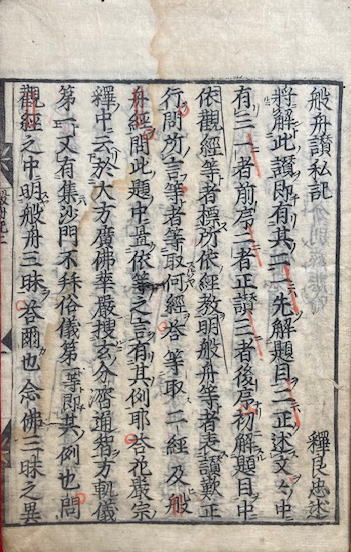 般舟讃私記 釋良忠述
將解此讃即有其二一先解題目二正述文文中
有三一者前序二者正讃三者後序初解題目中
依觀經等者標所依經教明般舟等者表讃歎正
行問所言等者等取何經答等取二經及般
舟經問此題中置依等之言有其例耶答花嚴宗
釋中云於大方廣佛華嚴搜玄分濟通智方軌儀
第一又有集沙門不拜俗儀第一等即其例也問
觀經之中明般舟三昧答爾也念佛三昧之異